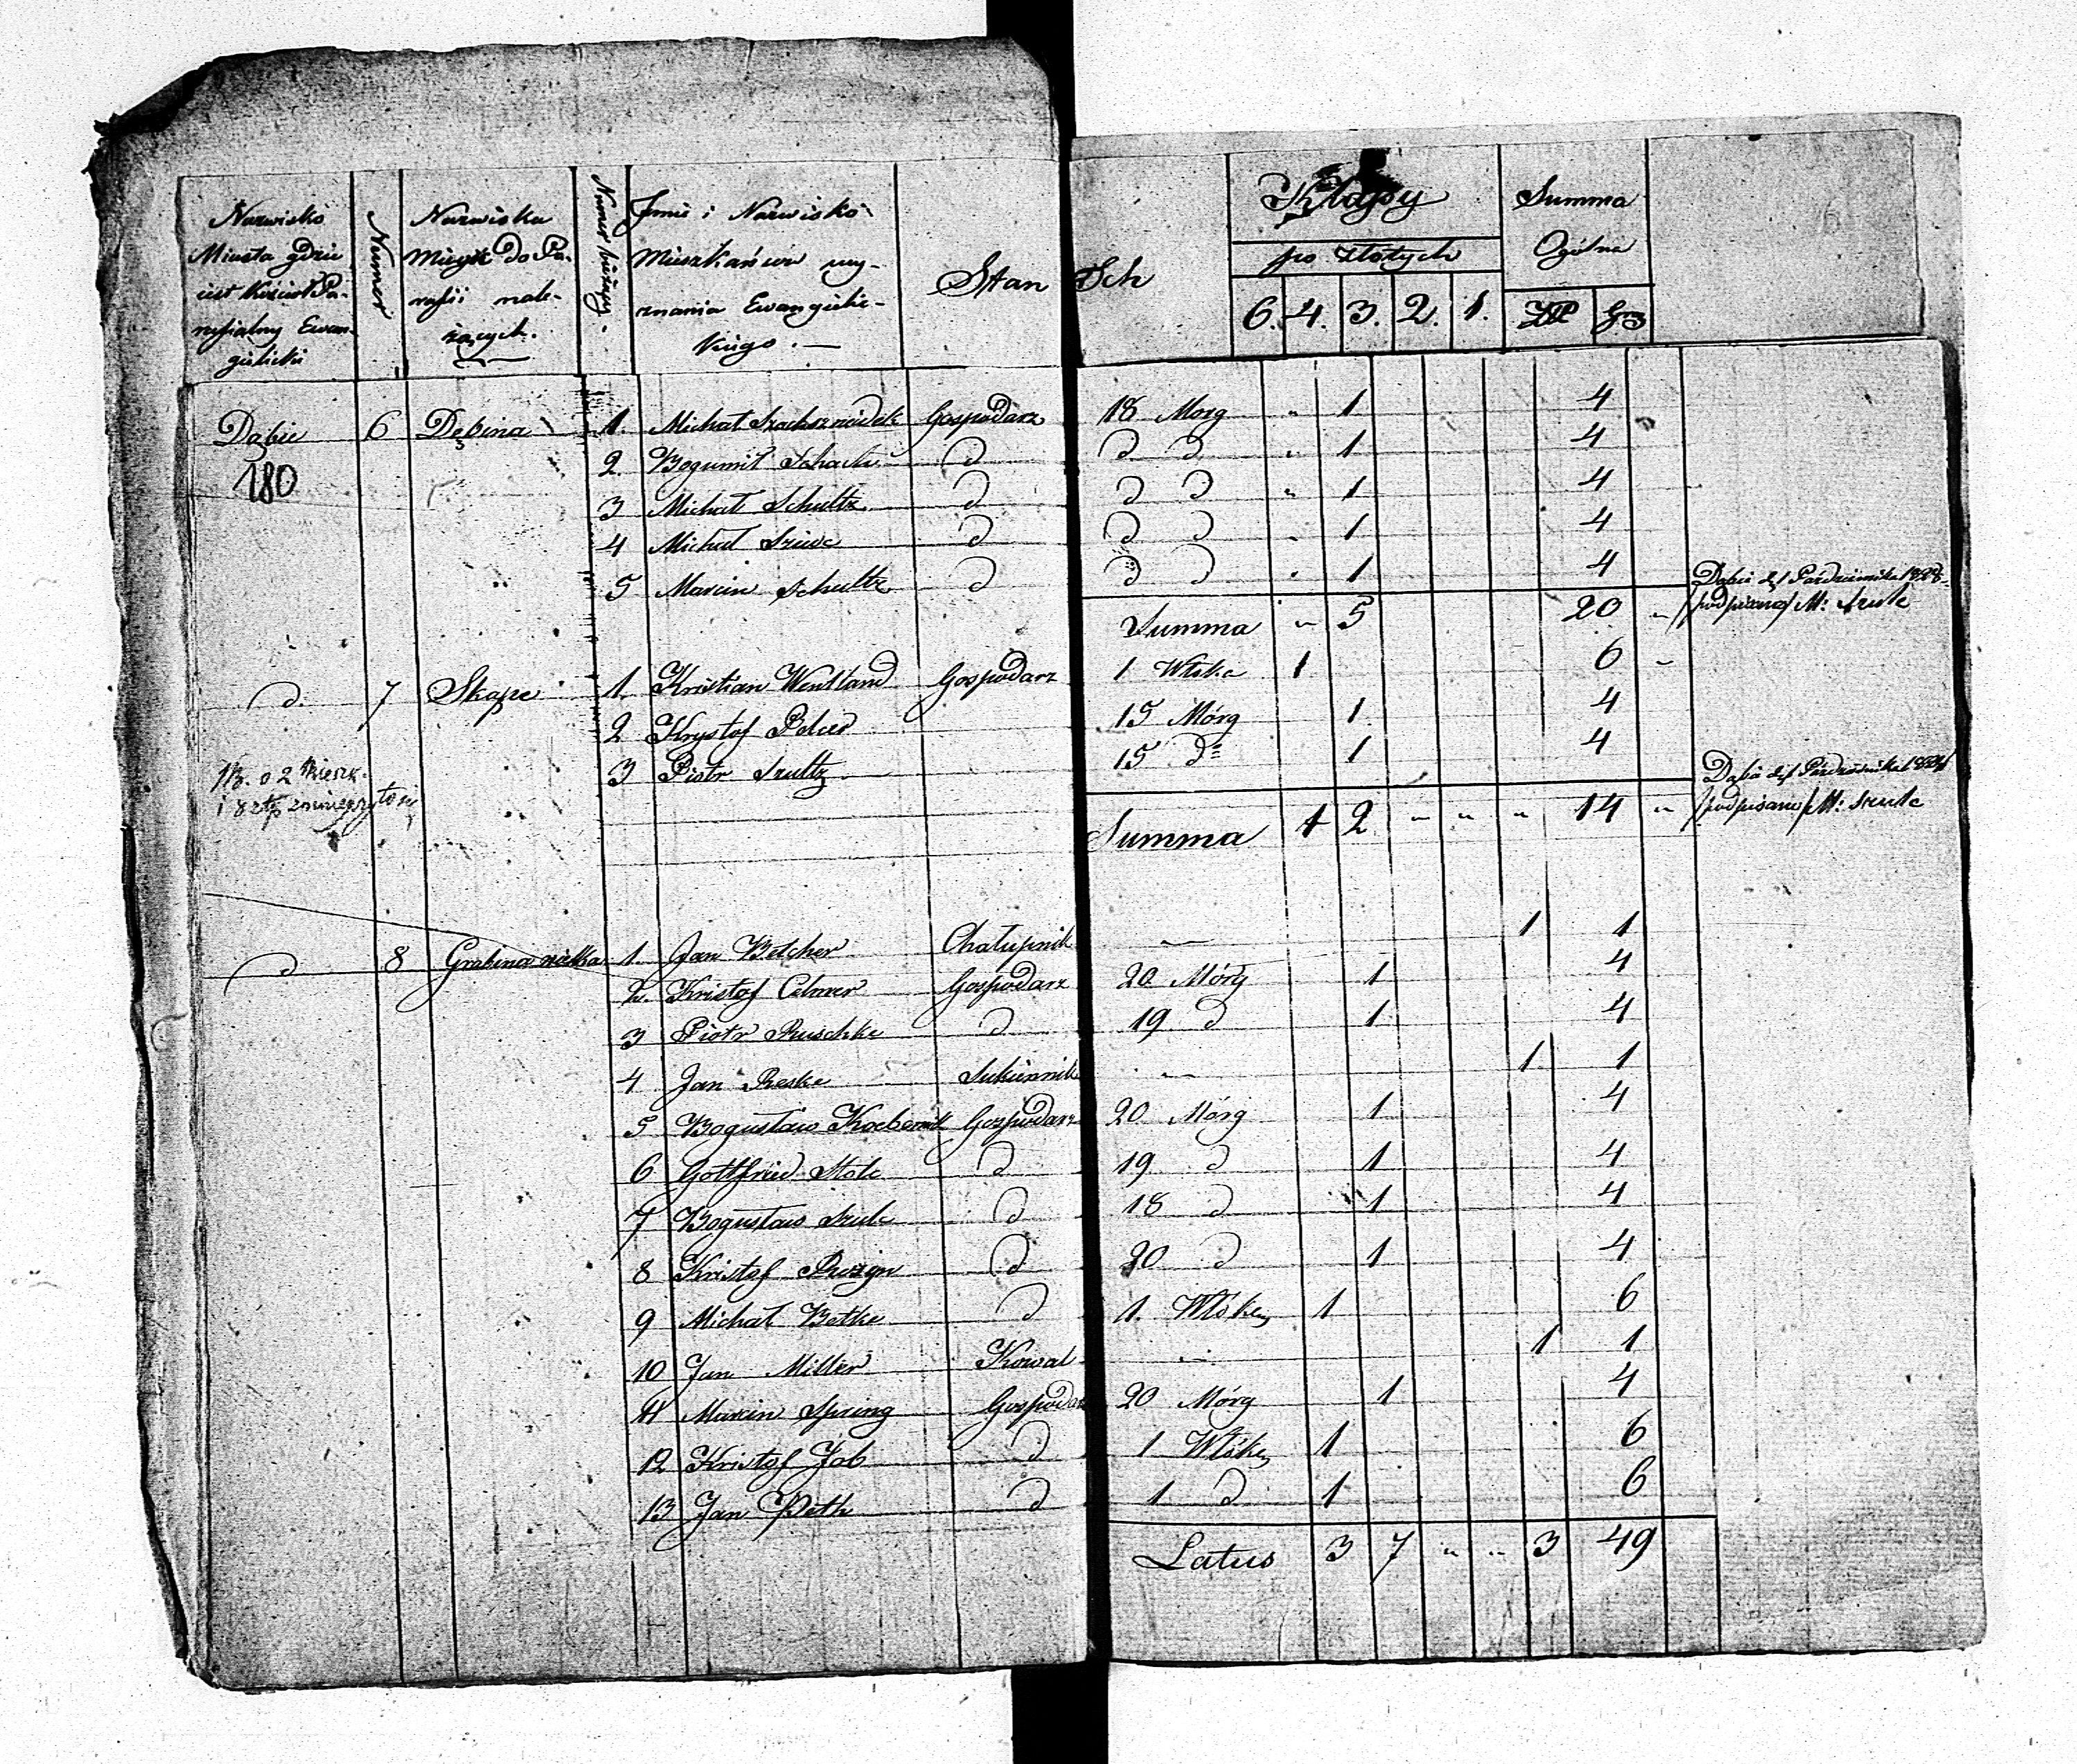 Nazwisko Miasta gdzie iest Kościoł Parafialny Ewangielicki
Numer
Nazwiska Mieysc do Parafii należących.
Numer bieżący.
Jmie i Nazwisko Mieszkańców wyznania Ewangielickiego.
Stan
Sch
Klassy
po złotych
6. 4. 3. 2. 1.
Summa Ogólna
ZłP Grz
Dąbie 6 Dębina 1. Michał Gospodarz 18 Morg " 1 4
180
2. Bogumił Schach d d d " 1 4
3 Michał Schultz d d d " 1 4
4 Michał d d d " 1 4
5 Marcin Schultz d d d " 1 4
Summa " 5 20 "
Dąbie d. 1 Października 1828.
/podpisano/ M: Szulc
d. 7 Skąpe 1. Kristian Wentland Gospodarz 1 Włoka 1 6 "
2 Krystof 15 Mórg 1 4
3 Piotr Szultz 15 do 1 4
NB. o 2 Mieszk.
i 8 złp zmnieyszyło się
Summa 1 2 " " " 14 "
Dąbie d. 1 Października
/podpisano/ M: Szulc
d 8 Grabina wielka 1. Jan Belcher Chałupnik — 1 1
2. Kristof Celmer Gospodarz 20 Mórg 1 4
3 Piotr Ruschke d 19 d 1 4
4 Jan Reske Sukiennik — 1. 1
5 Bogusław Gospodarz 20 Mórg 1 4
6 Gottfried Stolc d 19 d 1 4
7 Bogusław Szulc d 18 d 1 4
8 Kristof d 20 d 1 4
9 Michał Betke d 1. Włóka 1 6
10 Jan Miller Kowal — 1 1
11 Marcin Spring Gospodarz 20 Mórg 1 4
12 Kristof Job d 1 Włóka 1 6
13 Jan Peth d 1 d 1 6
Latus 3 7 " " 3 49